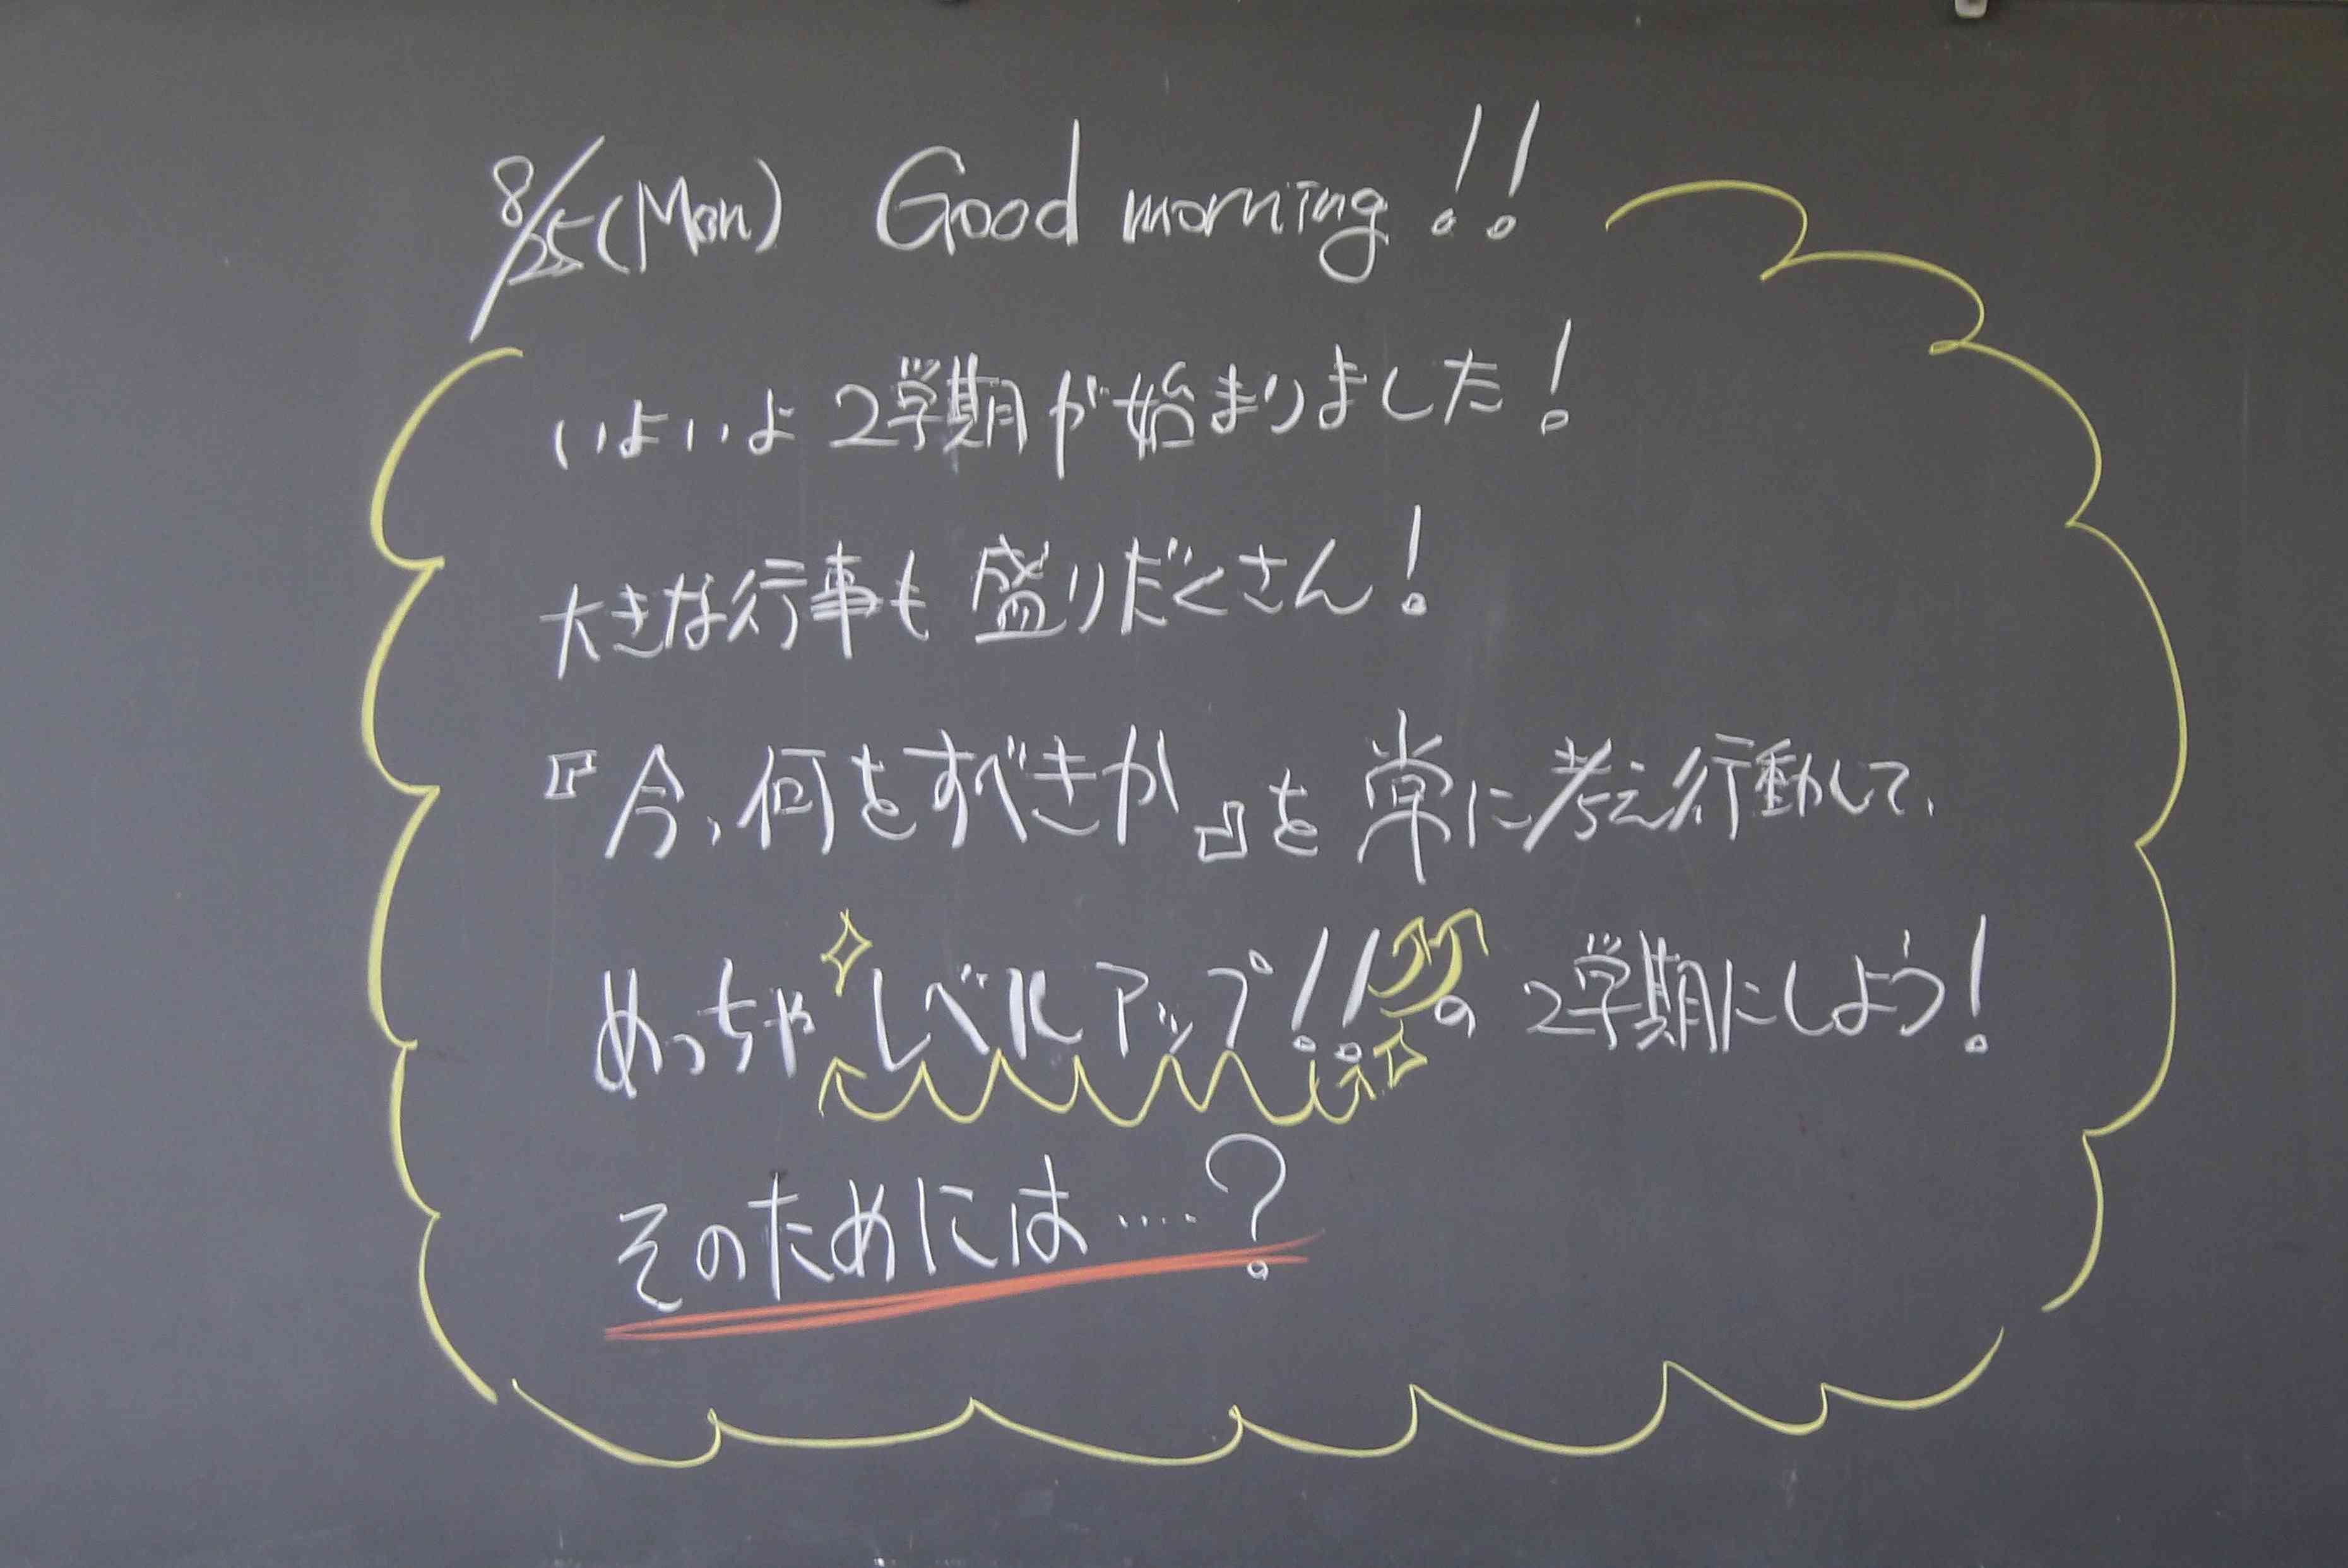 8/25(Mon) Good morning!!
いよいよ2学期が始まりました!
大きな行事も盛りだくさん!
『今,何をすべきか』を常に考え行動して、
めっちゃレベルアップ!!の2学期にしよう!
そのためには....?